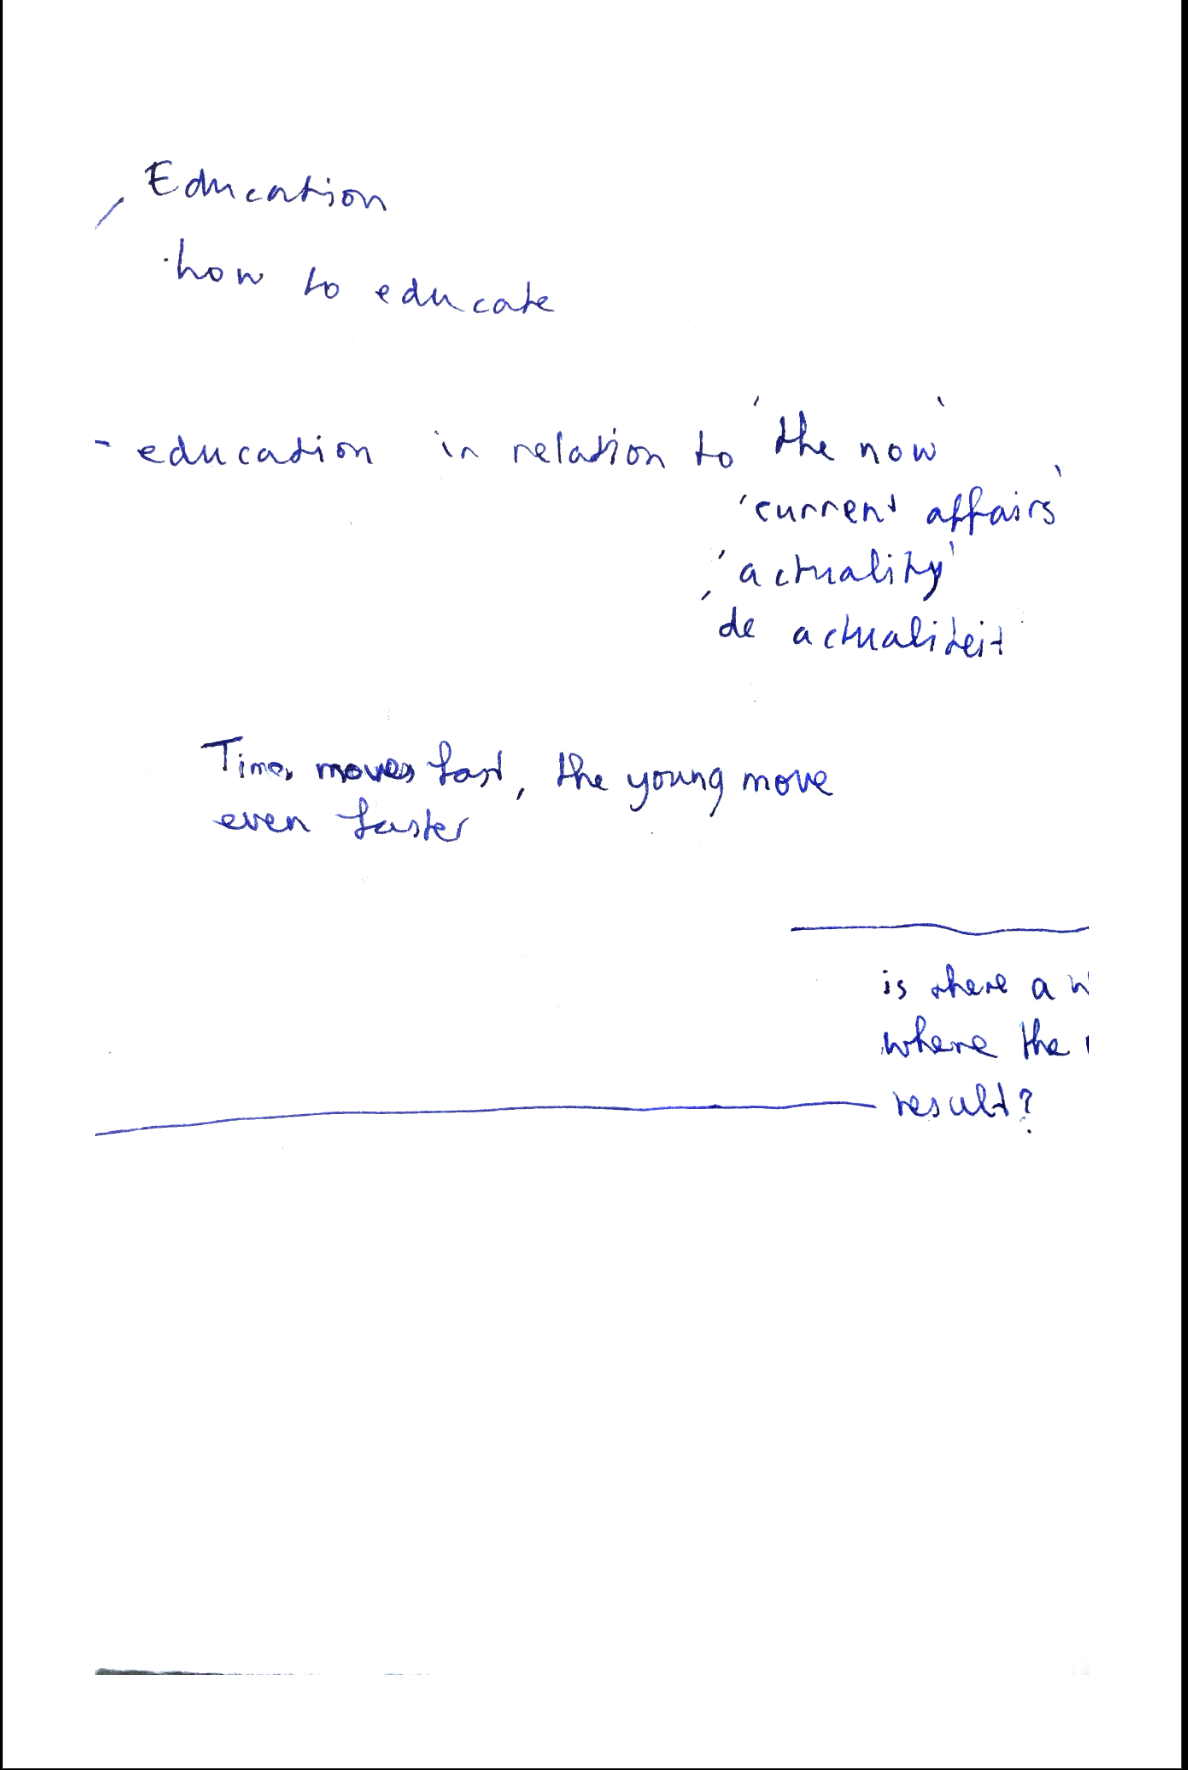 Education
· how to educate
- education in relation to 'the now'
'current affairs'
'actuality'
'de actualiteit
Time moves fast, the young move
even faster
is there a
where the
result?